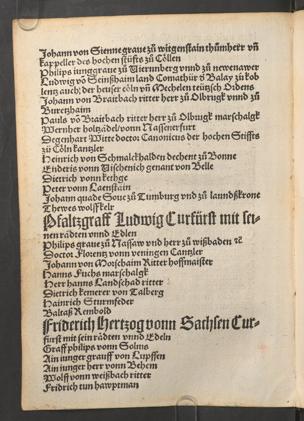 Johann von Sienne graue zů witgenstain thůmherr vñ
kappeller des hochen stüfts zů Cöllen
Philips iunggraue zů Viernnberg vnnd zů newenawer
Ludwig vō Seinßhaim land Comathür d̄ Balay zů kob
lentz auch; der heuser cöln vñ Mecheln teütsch Ordens
Johann von Braitbach ritter herr zů Olbrugk vnd zů
Buretzhaim
Pauls vō Braitbach ritter herr zů Olbrugk marschalgk
Wernher holtzadel vonn Nassenerfurt
Degenhart Witte doctor Canonicus der hochen Stiffts
zů Cöln kantzler
Heinrich von Schmalckhalden dechent zů Bonne
Enderis vonn Vischenich genant von Belle
Dietrich vonn kethge
Peter vonn Laenstain
Johann quade Souc zů Tumburg vnd zů laundßkrone
Thewes wolffkelr
Pfaltzgraff Ludwig Curfürst mit sei-
nen rädten vnnd Edlen
Philips graue zů Nassaw vnd herr zů wißbaden ꝛc
Doctor Florentz vonn veningen Cantzler
Johann vom Morßhaim Ritter hoffmaister
Hanns Fuchs marschalgk
Herr hanns Landschad ritter
Dietrich kemerer von Talberg
Hainrich Sturmfeder
Baltaß Rembold
Friderich Hertzog vonn Sachsen Cur-
fürst mit sein rädten vnnd Edeln
Graff philips vonn Solms
Ain iunger grauff von Lupffen
Ain iunger herr vonn Behem
Wolff vonn weißbach ritter
Fridrich tun hawptman